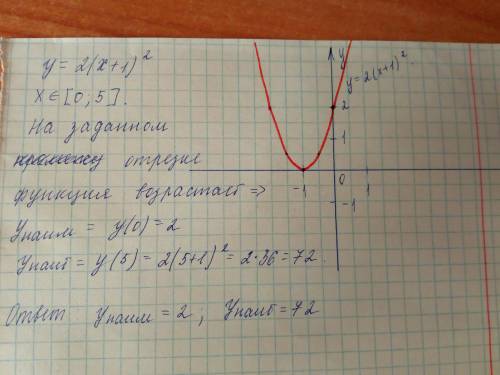 y = 2(x+1)²
x ∈ [0; 5].
На заданном
отрезке
функция возрастает =>
Yнаим = y(0) = 2
Yнаиб = y(5) = 2(5+1)² = 2·36 = 72.
Ответ Yнаим = 2, Yнаиб = 72
y
y = 2(x+1)².
2
1
-1 0 1
-1